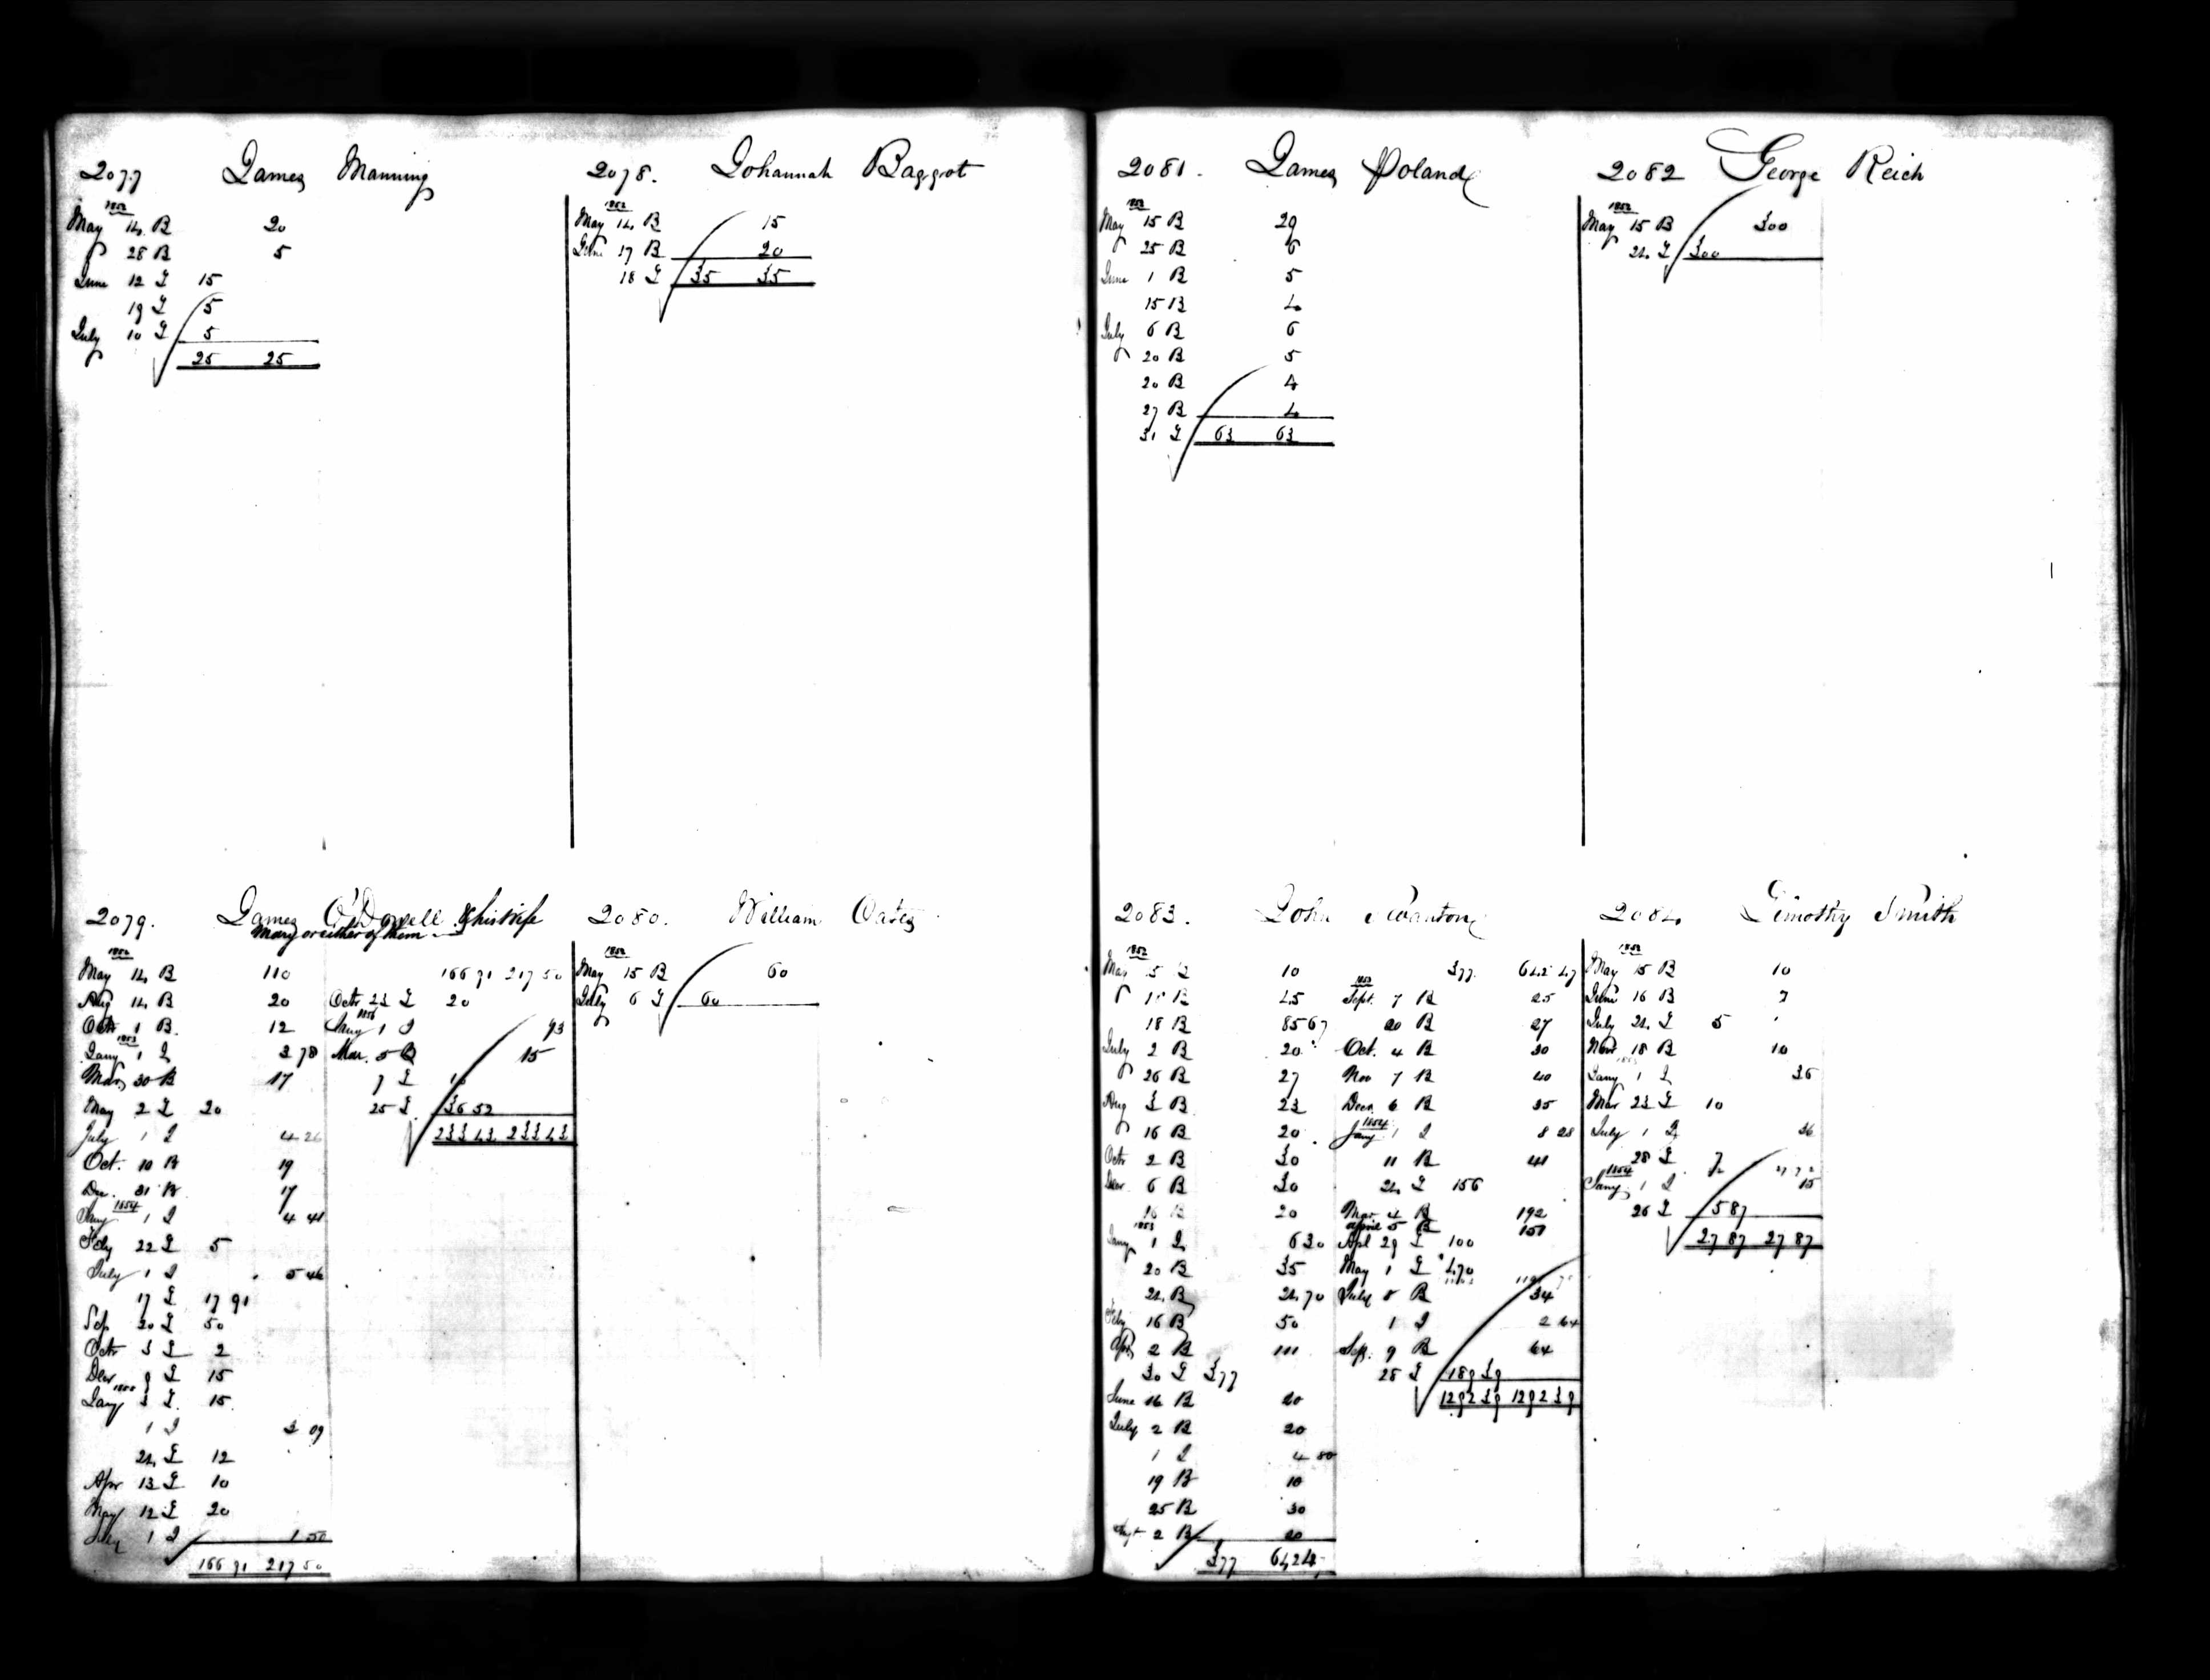 2077 James Manning
1852
May 14 B 20
28 B 5
June 12 I 15
19 I 5
July 10 I 5
25 25
2078. Johannah Baggot
1852
May 14 B 15
June 17 B 20
18 I 35 35
2079. James O'Dowell & his Wife
Mary or either of them
1852
May 14 B 110
Aug 14 B 20
Octr 1 B. 12
1853
Jany 1 I 2 78
Mar 30 B 17
May 2 I 20
July 1 I 4 26
Oct. 10 B 19
Dec. 31 B 17
1854
Jany 1 I 4 41
Feby 22 I 5
July 1 I 5 46
17 I 17 91
Sep 20 I 50
Octr 3 I 2
Decr 9 I 15
1855
Jany 3 I 15
1 I 3 09
24 I 12
Apr 13 I 10
May 12 I 20
July 1 I 1 50
166 91 217 50
166 91 217 50
Octr 23 I 20
1856
Jany 1 I 93
Mar. 5 B 15
7 I 10
25 I 36 52
233 43 233 43
2080. William Oates
1852
May 15 B 60
July 6 I 60
2081. James Poland
1852
May 15 B 29
25 B 6
June 1 B 5
15 B 4
July 6 B 6
20 B 5
20 B 4
27 B 4
31 I 63 63
2082 George Reich
1852
May 15 B 300
24 I 300
2083. John Swanton
1852
10
18 B 85 67
July 2 B 20
26 B 27
Aug 3 B 23
16 B 20
Octr 2 B 30
Decr 6 B 30
16 B 20
1853
Jany 1 I 6 30
20 B 35
24 B 24 70
Feby 16 B 50
Apr 2 B 111
30 I 377
June 16 B 20
July 2 B 20
1 I 4 80
19 B 10
25 B 30
2 B 20
377 642 4
377 642 47
1853
Sept. 7 B 25
20 B 27
Oct. 4 B 30
Nov 7 B 40
Decr 6 B 35
1854
Jany 1 I 8 28
11 B 41
24 I 156
Mar 4 B 192
April 5 B 151
Apl 29 I 100
May 1 I 470
July 8 B 34
1 I 2 64
Sep. 9 B 64
28 I 189 39
1292 39 1292 39
2084 Timothy Smith
1852
May 15 B 10
June 16 B 7
July 24 I 5
Novr 18 B 10
1853
Jany 1 I 36
Mar 23 I 10
July 1 I 26
28 I 7
1854
Jany 1 I 15
26 I 5 87
27 87 27 87